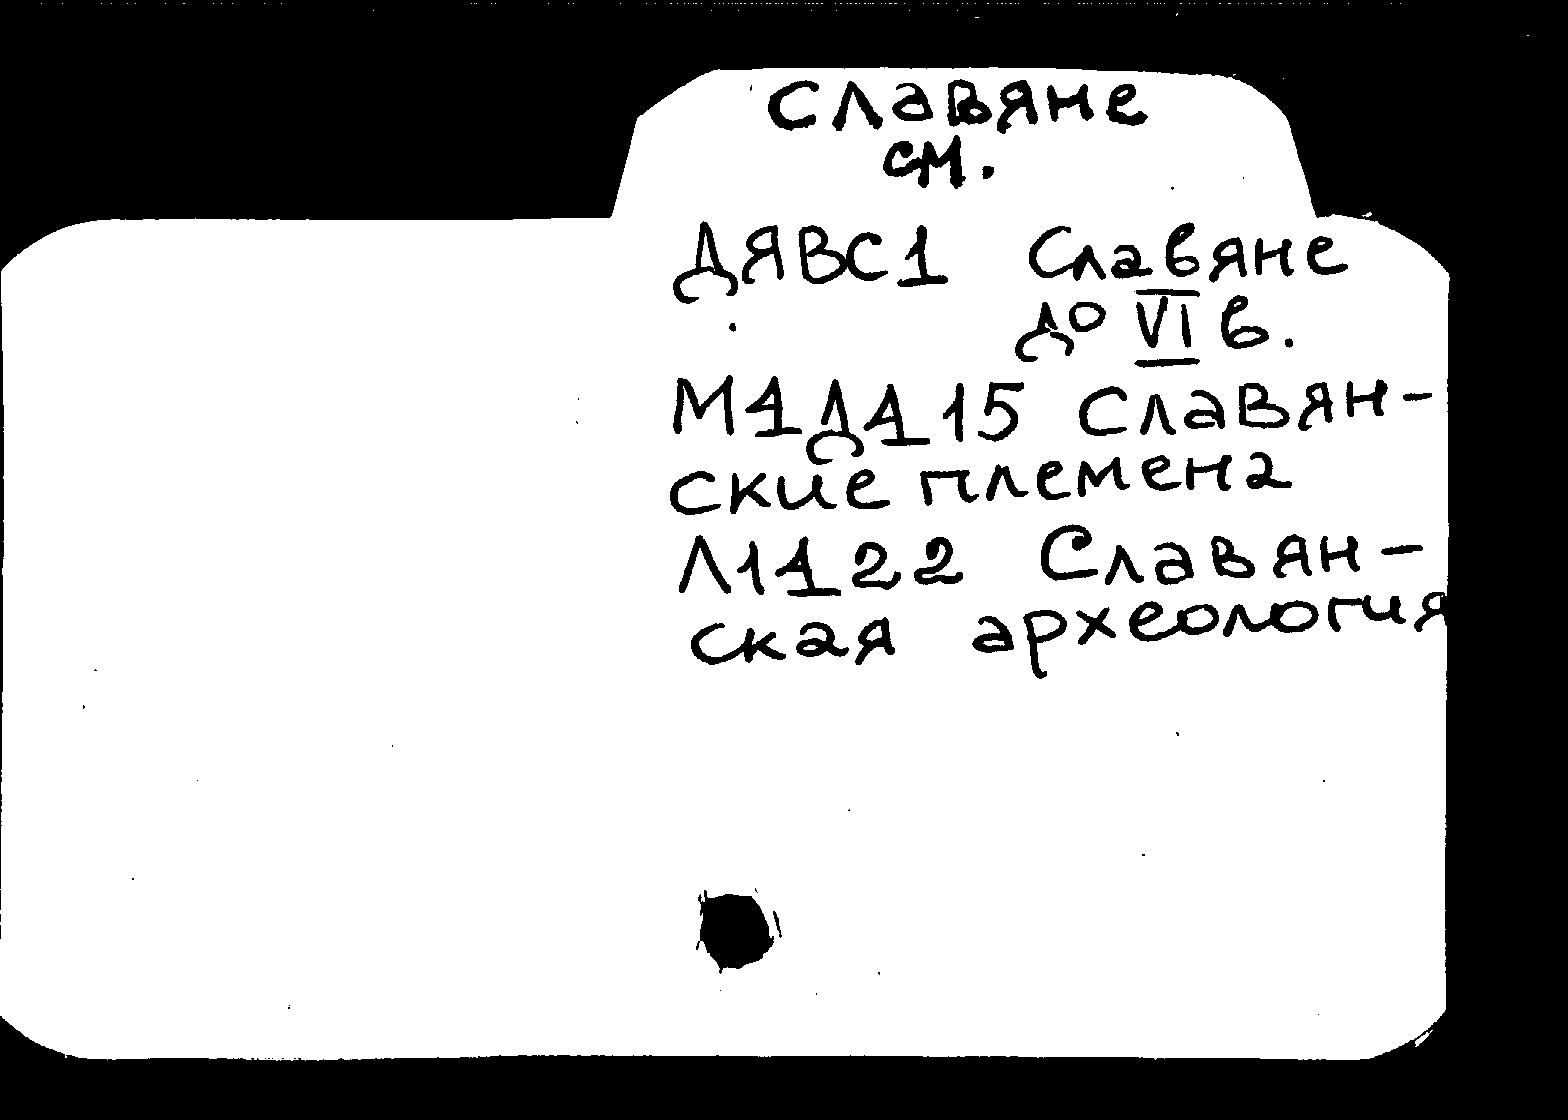 Славяне
см.
ДЯВС1 Славяне
до VI в.
М1Д115 Славян-
ские племена
Л1122 Славян-
ская археология